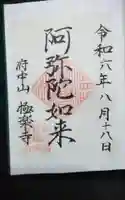 令和六年八月十八日
阿弥陀如来
府中山 極楽寺